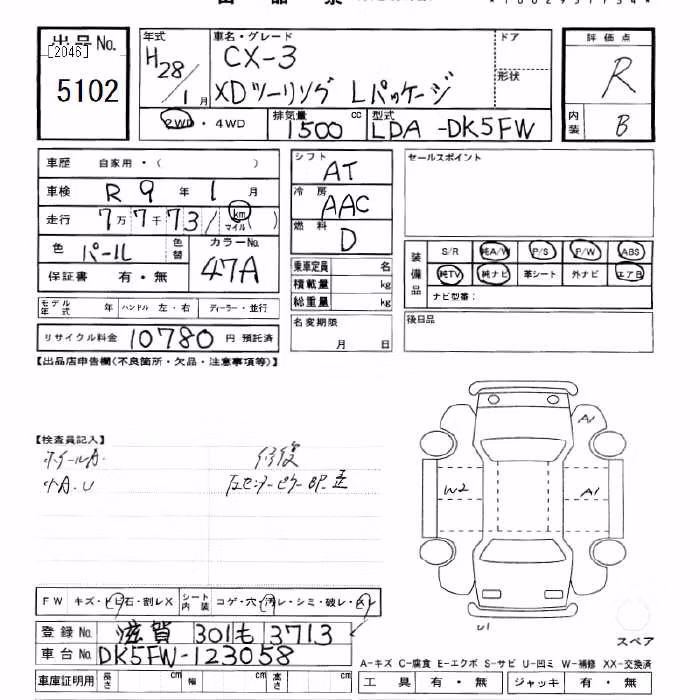 出品No.
[2046]
5102
年式
H28/1月
車名・グレード
CX-3
XDツーリング Lパッケージ
ドア
形状
評価点
R
内装
B
2WD・4WD
排気量
1500cc
型式
LDA-DK5FW
車歴 自家用・( )
車検 R 9年 1月
走行 7万7千73/(km マイル)
色 パール
色替
カラーNo.
47A
保証書 有・無
シフト
AT
冷房
AAC
燃料
D
乗車定員 名
積載量 kg
総重量 kg
名変期限
月 日
セールスポイント
装備品
S/R 純A/W P/S P/W ABS
純TV 純ナビ 革シート 外ナビ エアB
ナビ型番:
後日品
モデル年式 年 ハンドル 左・右 ディーラー・並行
リサイクル料金 10780円 預託済
【出品店申告欄(不良箇所・欠品・注意事項等)】
【検査員記入】
ホイールA.
小A.U
修復
A1
W2
A1
U1
FW キズ・トビ石・割レX
シート内装 コゲ・穴・汚レ・シミ・破レ・スレ
登録No. 滋賀 301も 3713
車台No. DK5FW-123058
車庫証明用 長さ cm 幅 cm 高さ cm
スペア
A-キズ C-腐食 E-エクボ S-サビ U-凹ミ W-補修 XX-交換済
工具 有・無 ジャッキ 有・無